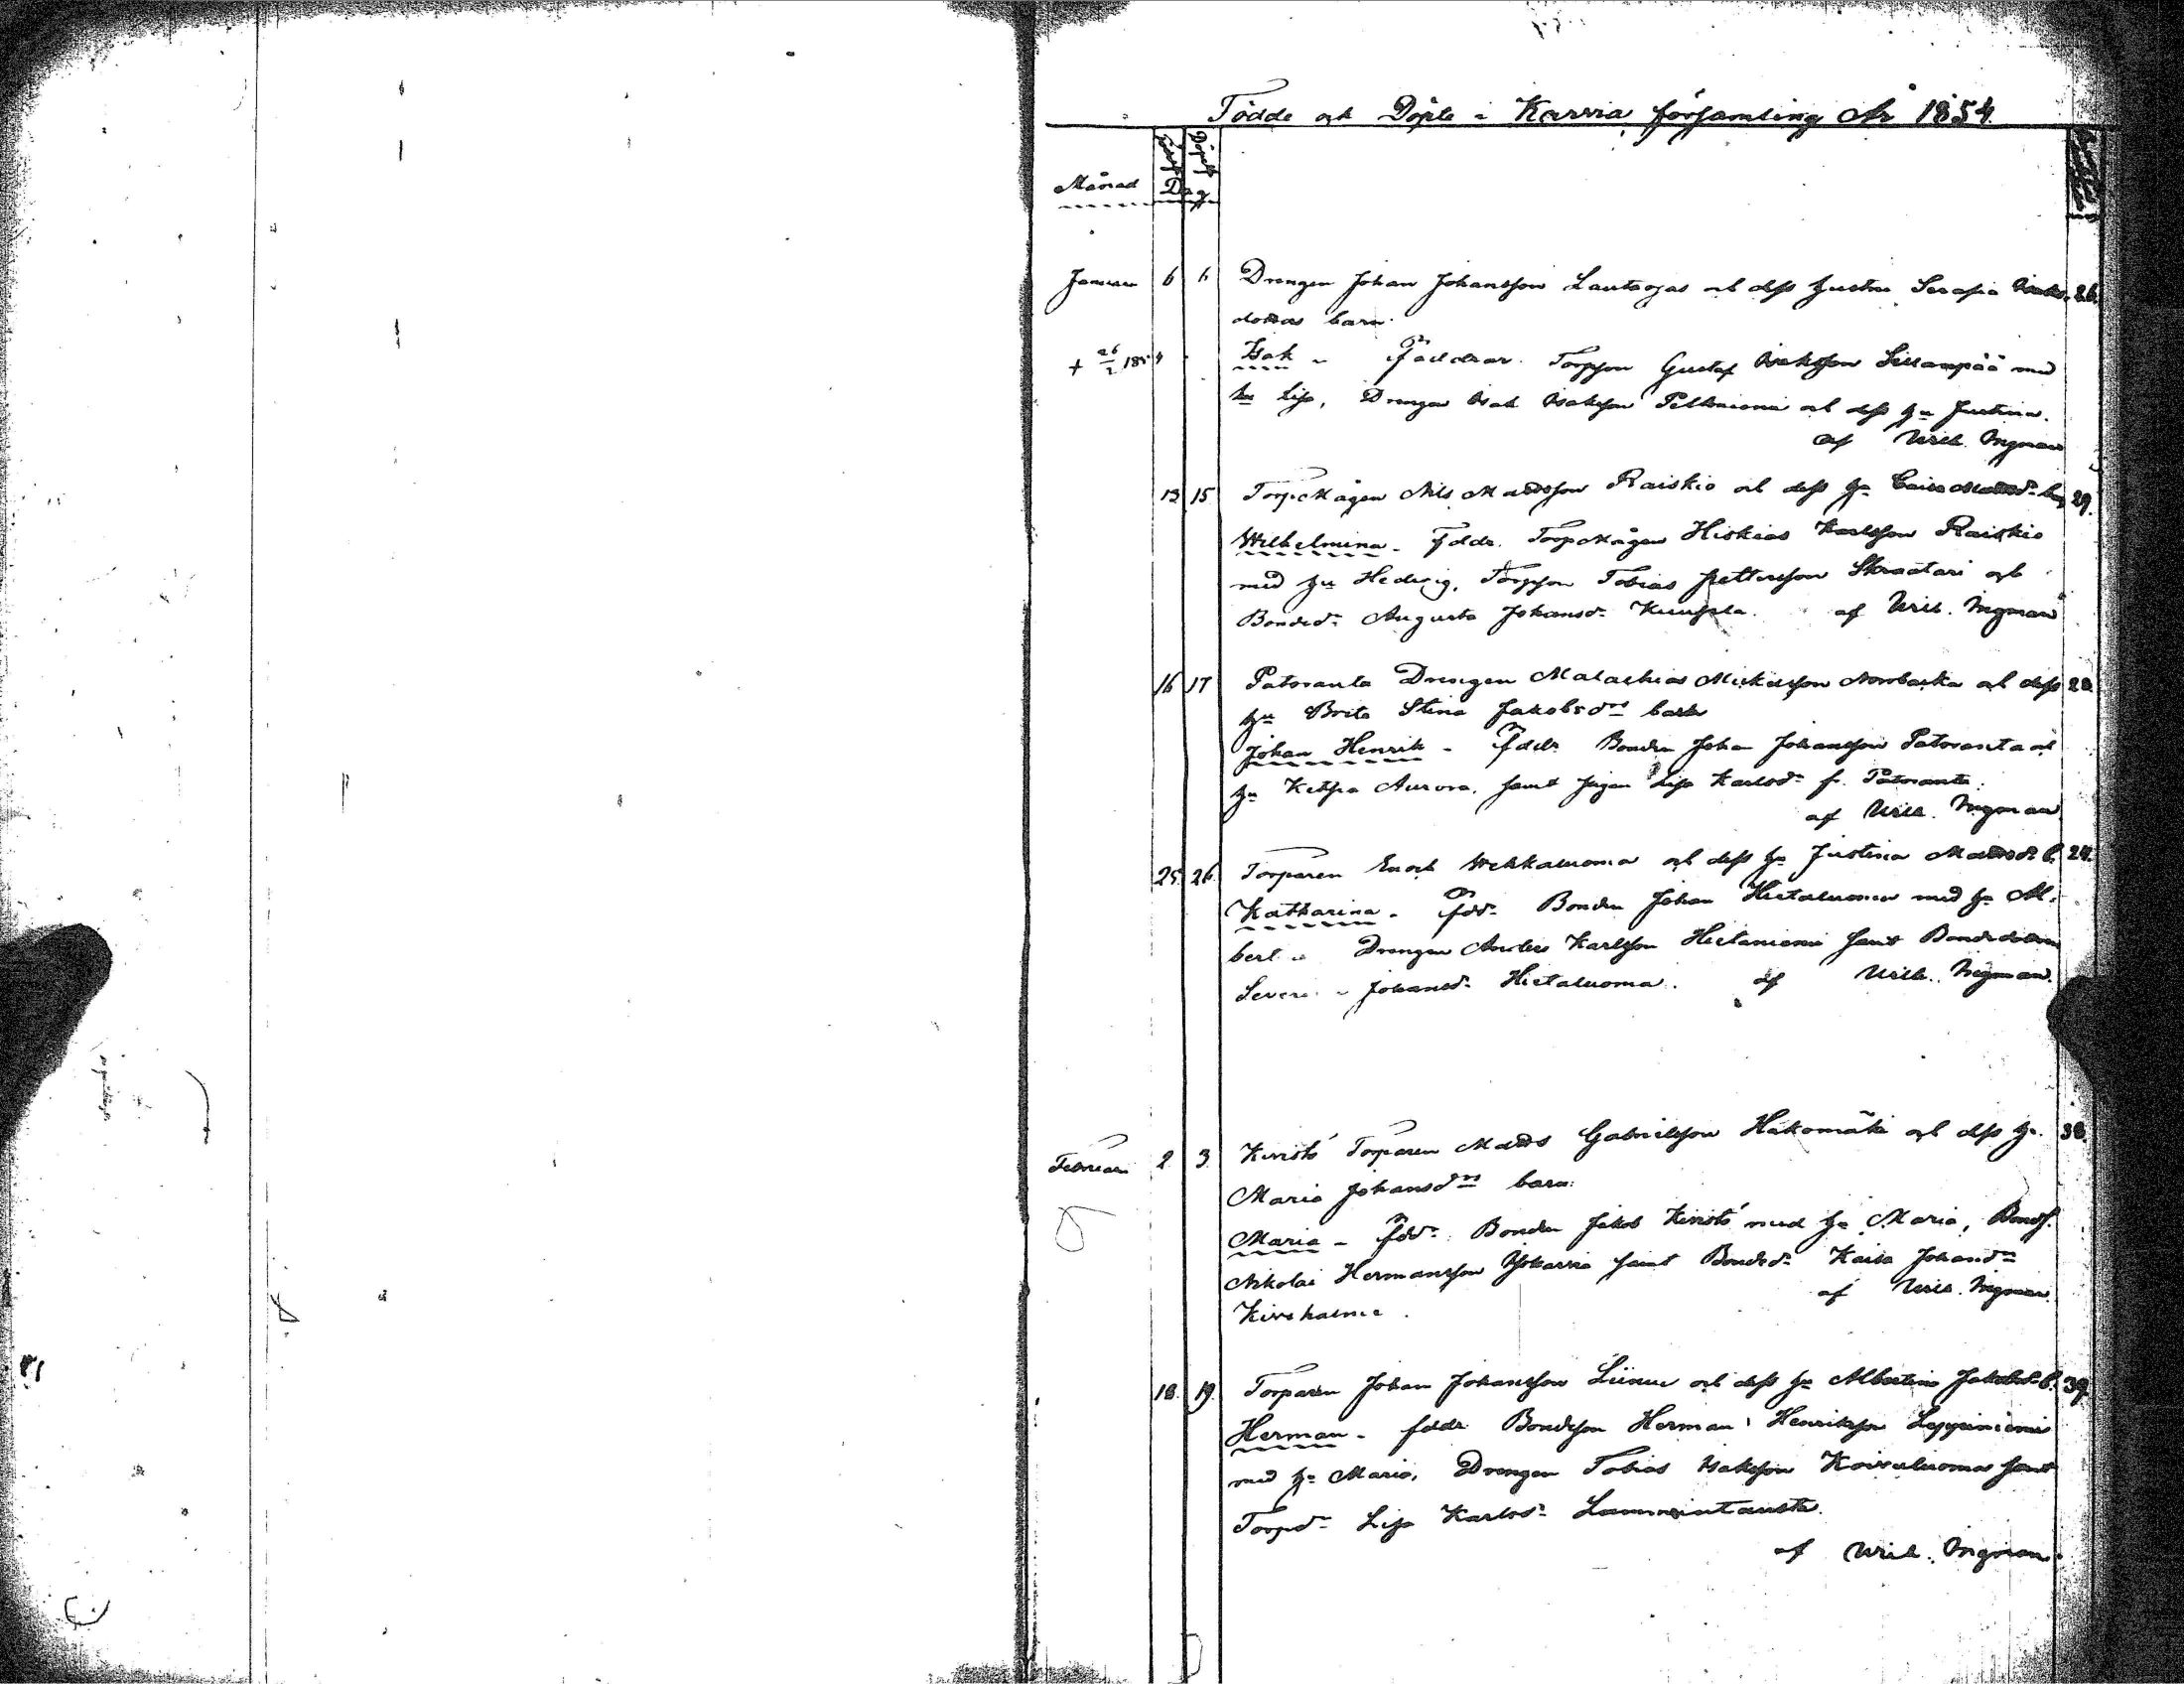 Födde och Döpte i Karvia församling År 1854.
Månad Dag
Januari 6 6 Drengen Johan Johansson Lautaojas och dess hustru Serafia Isaks- 26.
dotters barn.
+ 26/2 1854 Isak - Faddrar. Torpson Gustaf Isaksson Sillanpää med
hu Lisa, Drengen Isak Isaksson Peltoniemi och dess hu Justina.
af Wilh. Ingman
13 15 Torpmågen Nils Mattsson Raiskio och dess hu Caisa Mattsdr barn 29.
Wilhelmina - Faddr. Torpmågen Hiskias Karlsson Raiskio
med hu Hedvig, Torpson Tobias Pettersson Skraatari och
Bonded. Augusta Johansdr af Wilh. Ingman
16 17 Patoranta Drengen Malachias Mickelsson och dess 28.
hu Brita Stina Jakobsdrs barn
Johan Henrik - Faddr Bonden Johan Johansson Patoranta och
hu Aurora, samt pigan Lisa Karlsdr fr. Patoranta.
af Wilh. Ingman
25. 26. Torparen Enoch Wehkaluoma och dess hu Justina Mattsdr b. 24.
Katharina - Fddr Bonden Johan Hietaluoma med hu Al-
bert Drengen Anders Karlsson Hietaniemi samt Bondedottren
Severi Johansdr Hietaluoma. af Wilh. Ingman.
Februari 2 3 Kivistö Torparen Matts Gabrielsson Hakomäki och dess hu 38.
Maria Johansdrs barn:
Maria - Fddr Bonden Jakob Kivistö med hu Maria, Bonds.
Nikolai Hermansson Ylikarvia samt Bonded. Kaisa Johansdr
af Wilh. Ingman
18. 19. Torparen Johan Johansson och dess hu Albertina Jakobsdr b. 39.
Herman - faddr Bondeson Herman Henriksson Leppiniemi
med hu Maria, Drengen Tobias Isaksson Koivuluoma samt
Torpdr Lisa Karlsdr Lamminlausta.
af Wilh. Ingman.